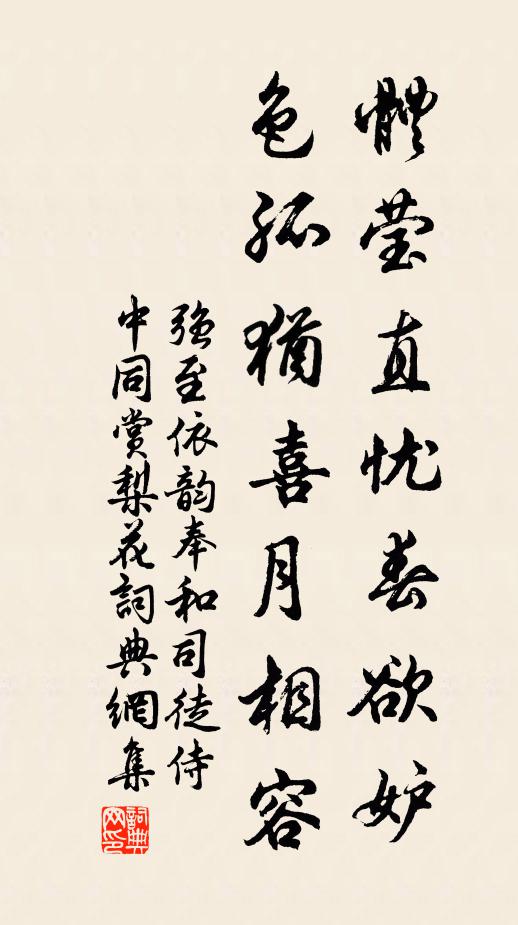 體莹直忧春欲妒
色孤猶喜月相容
强至依韵奉和司徒侍
中同赏梨花詞典網集
詞典
网印